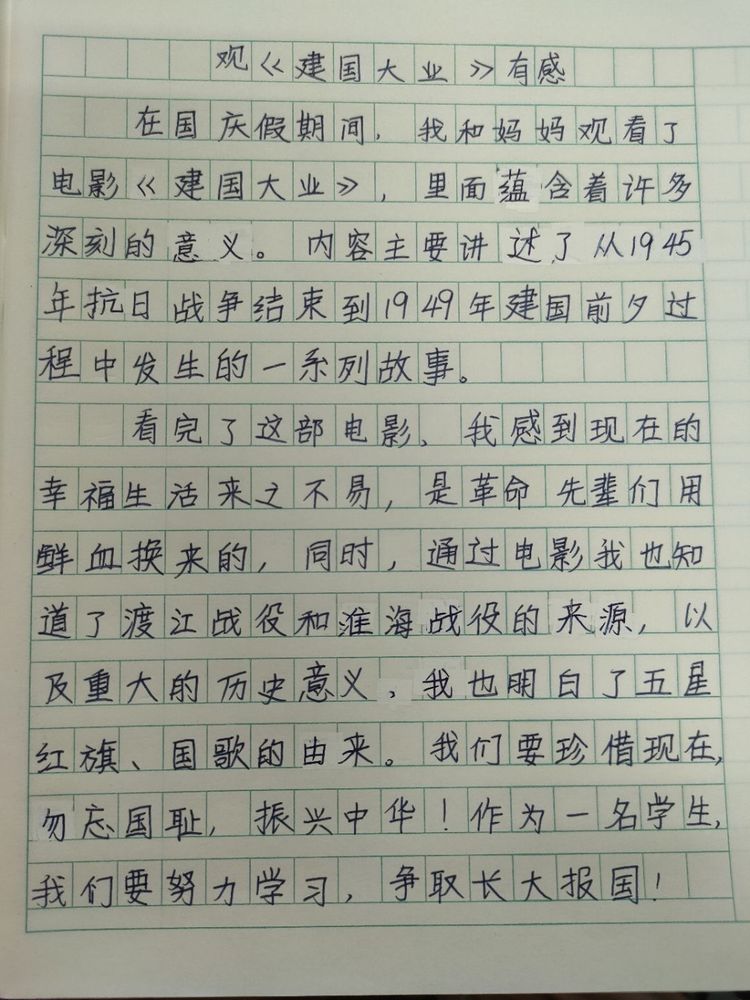 观《建国大业》有感
在国庆假期间，我和妈妈观看了
电影《建国大业》，里面蕴含着许多
深刻的意义。内容主要讲述了从1945
年抗日战争结束到1949年建国前夕过
程中发生的一系列故事。
看完了这部电影、我感到现在的
幸福生活来之不易，是革命先辈们用
鲜血换来的，同时，通过电影我也知
道了渡江战役和淮海战役的来源，以
及重大的历史意义、我也明白了五星
红旗、国歌的由来。我们要珍借现在，
勿忘国耻，振兴中华！作为一名学生，
我们要努力学习，争取长大报国！